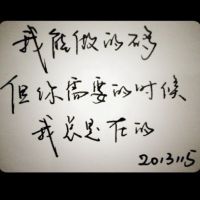 我能做的
但你需要的时候
我总是在的
2013115